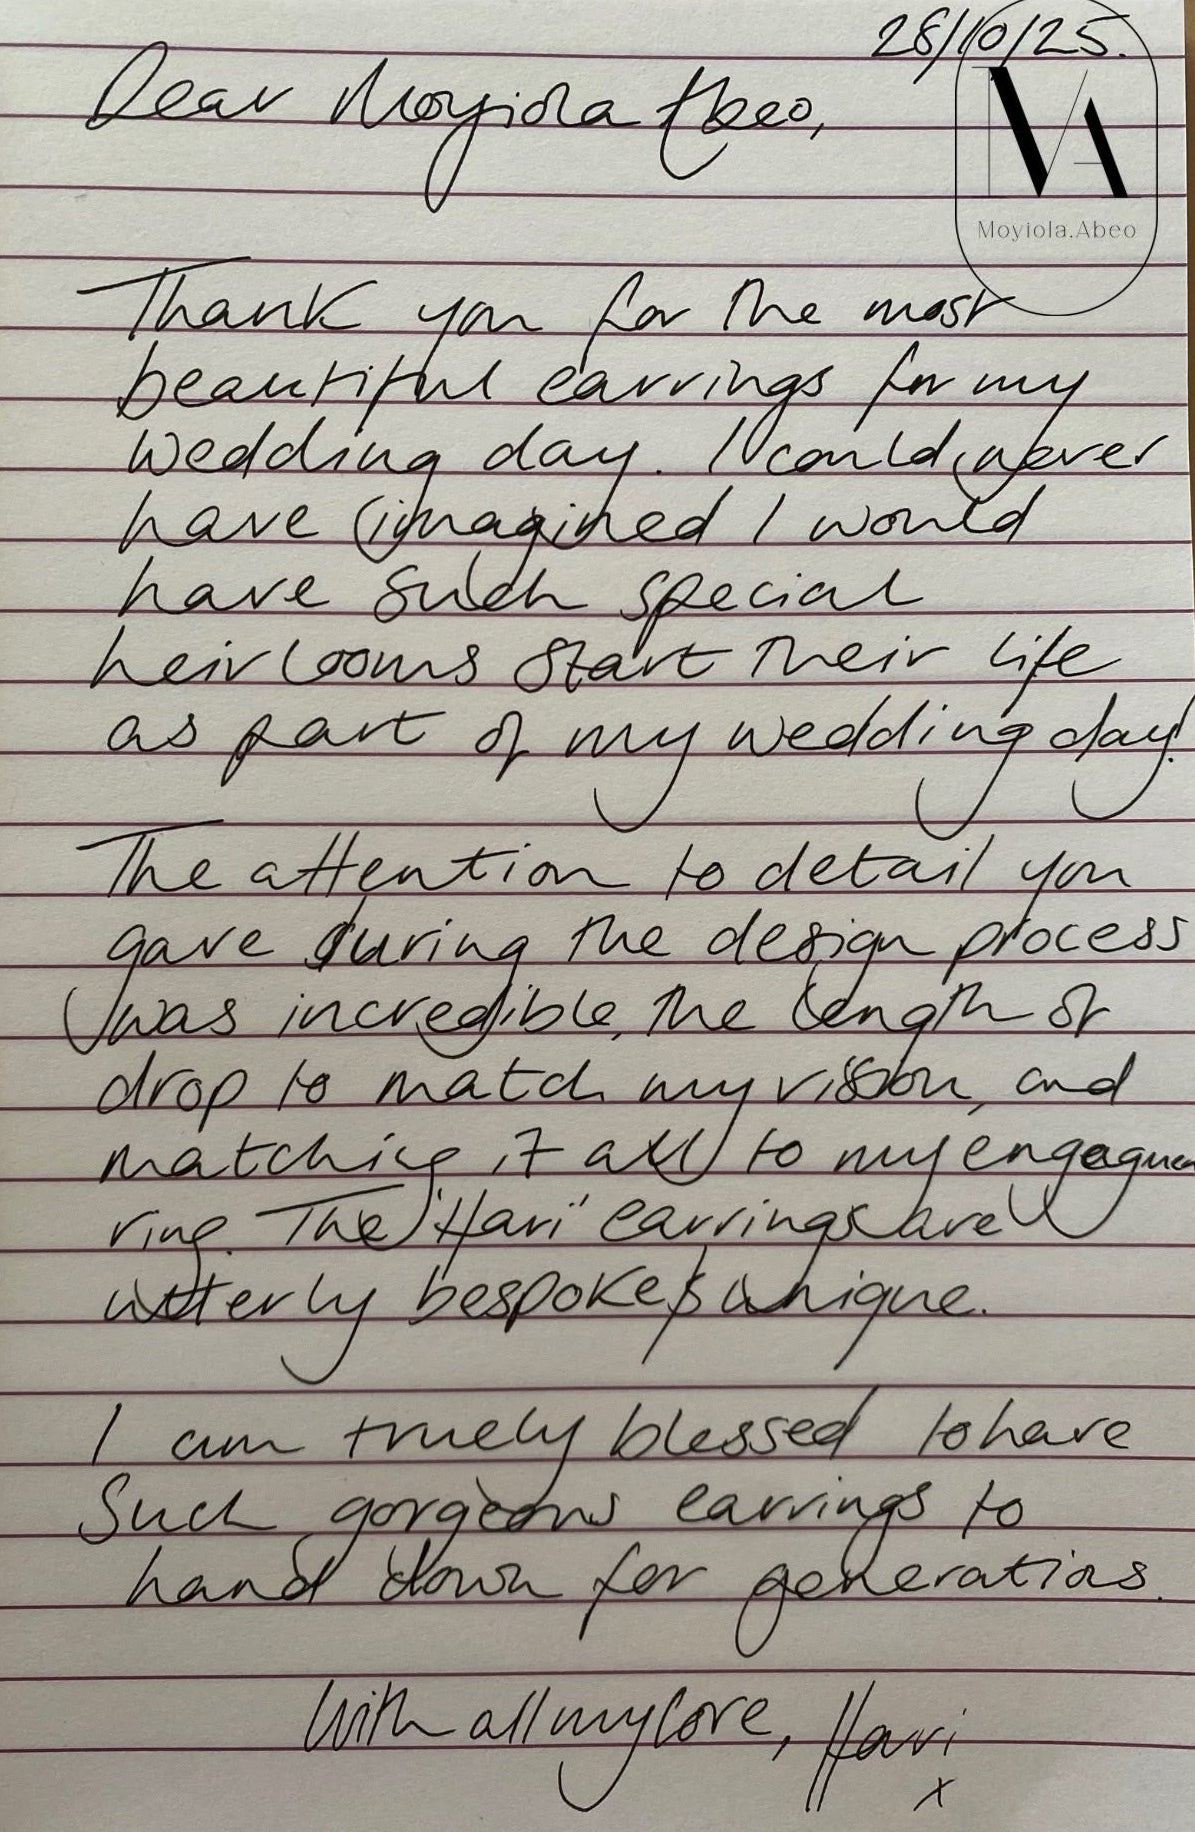 28/10/25.
Dear Moyiola Abeo,
MA
Moyiola.Abeo
Thank you for the most
beautiful earrings for my
wedding day. I could never
have imagined I would
have such special
heirlooms start their life
as part of my wedding day!
The attention to detail you
gave during the design process
was incredible, the length of
drop to match my vision, and
matching it all to my engagement
ring. The "Hari" earrings are
utterly bespoke & unique.
I am truely blessed to have
Such gorgeous earrings to
hand down for generations.
With all my love, Hari
x